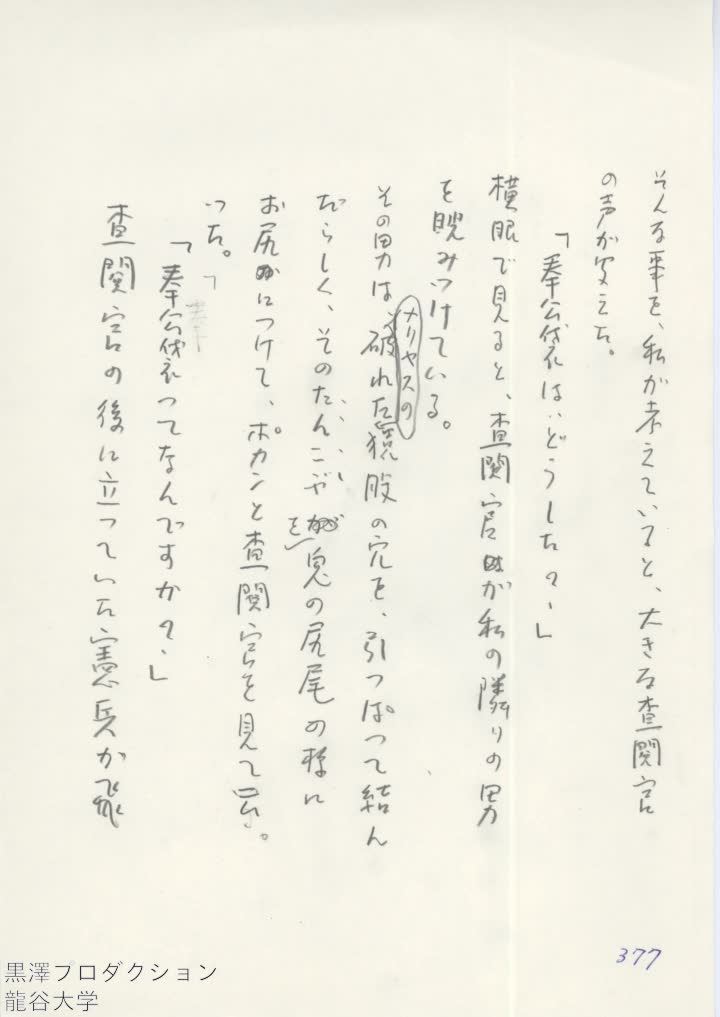 そんな事を、私が考えていると、大きな査閲官
の声が聞えた。
「奉公袋は、どうした？」
横眼で見ると、査閲官が私の隣りの男
を睨みつけている。
その男は、メリヤスの破れた猿股の穴を、引っぱって結ん
だらしく、そのたんこぶを兎の尻尾の様に
お尻につけて、ポカンと査閲官を見て云
った。
「奉公袋ってなんですか？」
査閲官の後に立っていた憲兵が飛
377
黒澤プロダクション
龍谷大学